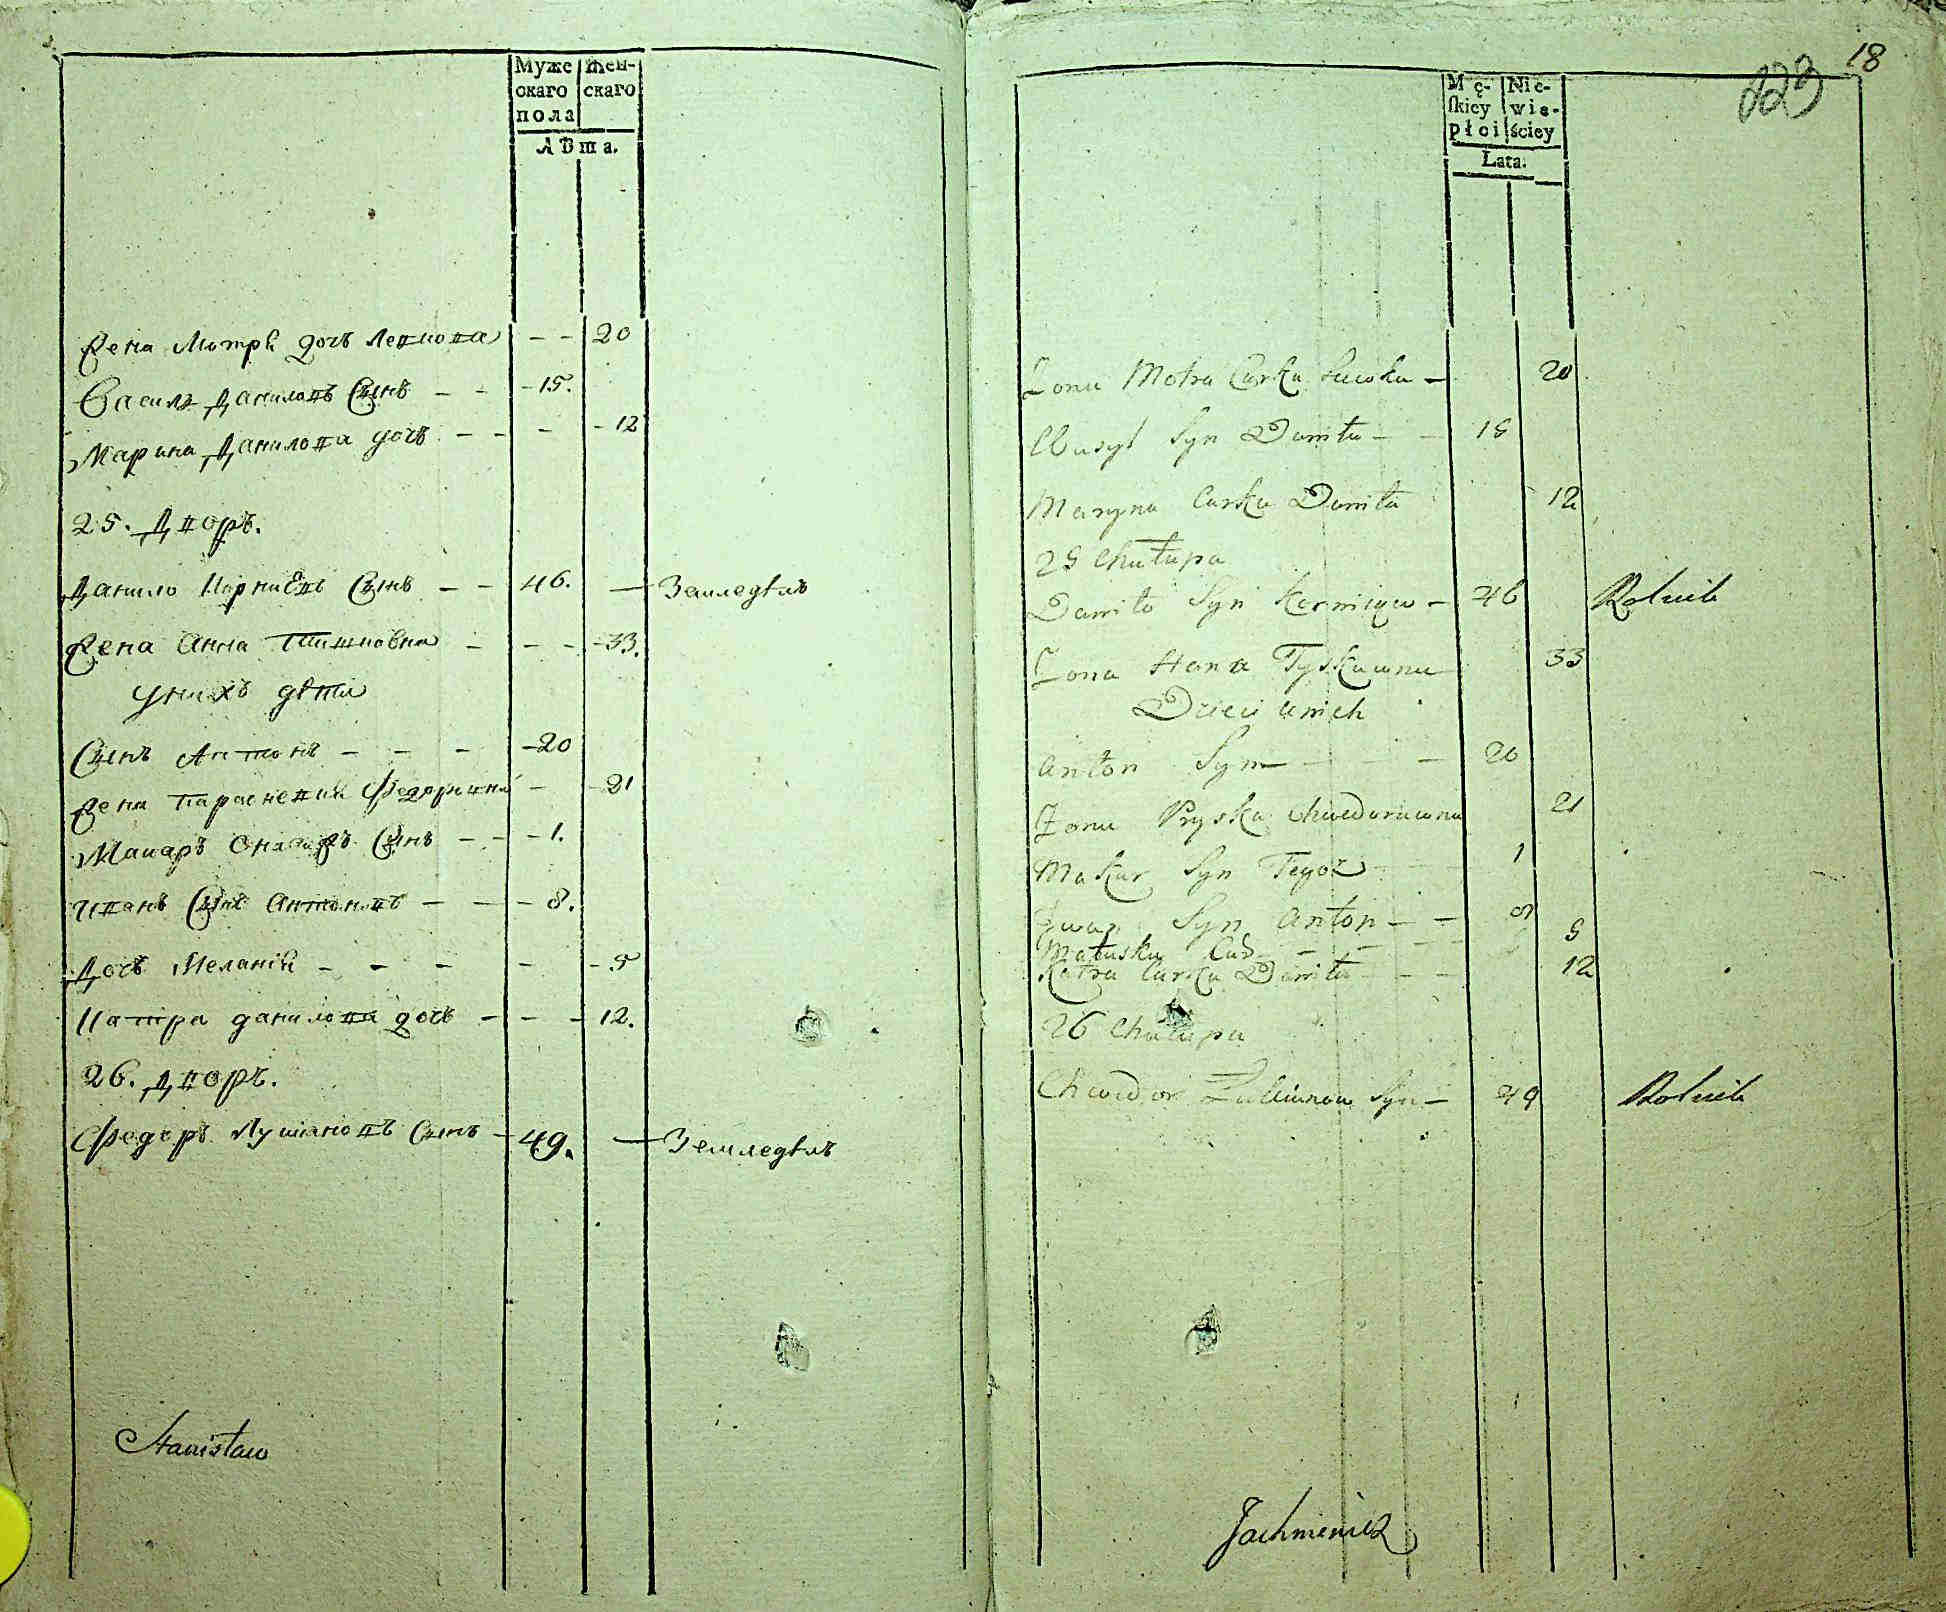 Муже Жен-
скаго скаго
пола
лѣта.
Жена Мотря дочь Левкова - - 20
Василь Даниловъ Сынъ - - - 15.
Марина Данилова дочь - - - - 12
25. Дворъ.
Данило Корніевъ Сынъ - - 46. — Земледѣлъ
Жена Анна Тишковна - - - - 33.
У нихъ дѣти
Сынъ Антонъ - - - - 20
Жена Параскевия Федоровна - - 21
Макаръ Сынъ - - - 1.
Иванъ Сынъ Антоновъ - - - 8.
Дочь Меланія - - - - - 5
Катра данилова дочь - - - 12.
26. Дворъ.
Федоръ Лукіановъ Сынъ - 49. — Земледѣлъ
Stanisław
18
223
Mę- Nie-
skiey wie-
płci ściey
Lata.
Żona Motra Curka - 20
Wasyl Syn Daniła - - 15
Maryna Curka Daniła 12
25 Chałupa
Daniło Syn Korniiow - 46 Rolnik
Żona Hana Tyszkuwna 33
Dzieci u nich
Anton Syn - - - 20
Żona Pryska Chwedoruwna 21
Makar Syn Tegoż - - 1
Iwan Syn Anton - - 8
Małuska Cur - - - - 5
Katra Curka Daniła - - - 12
26 Chałupa
Chwedor Syn - 49 Rolnik
Jachmowicz